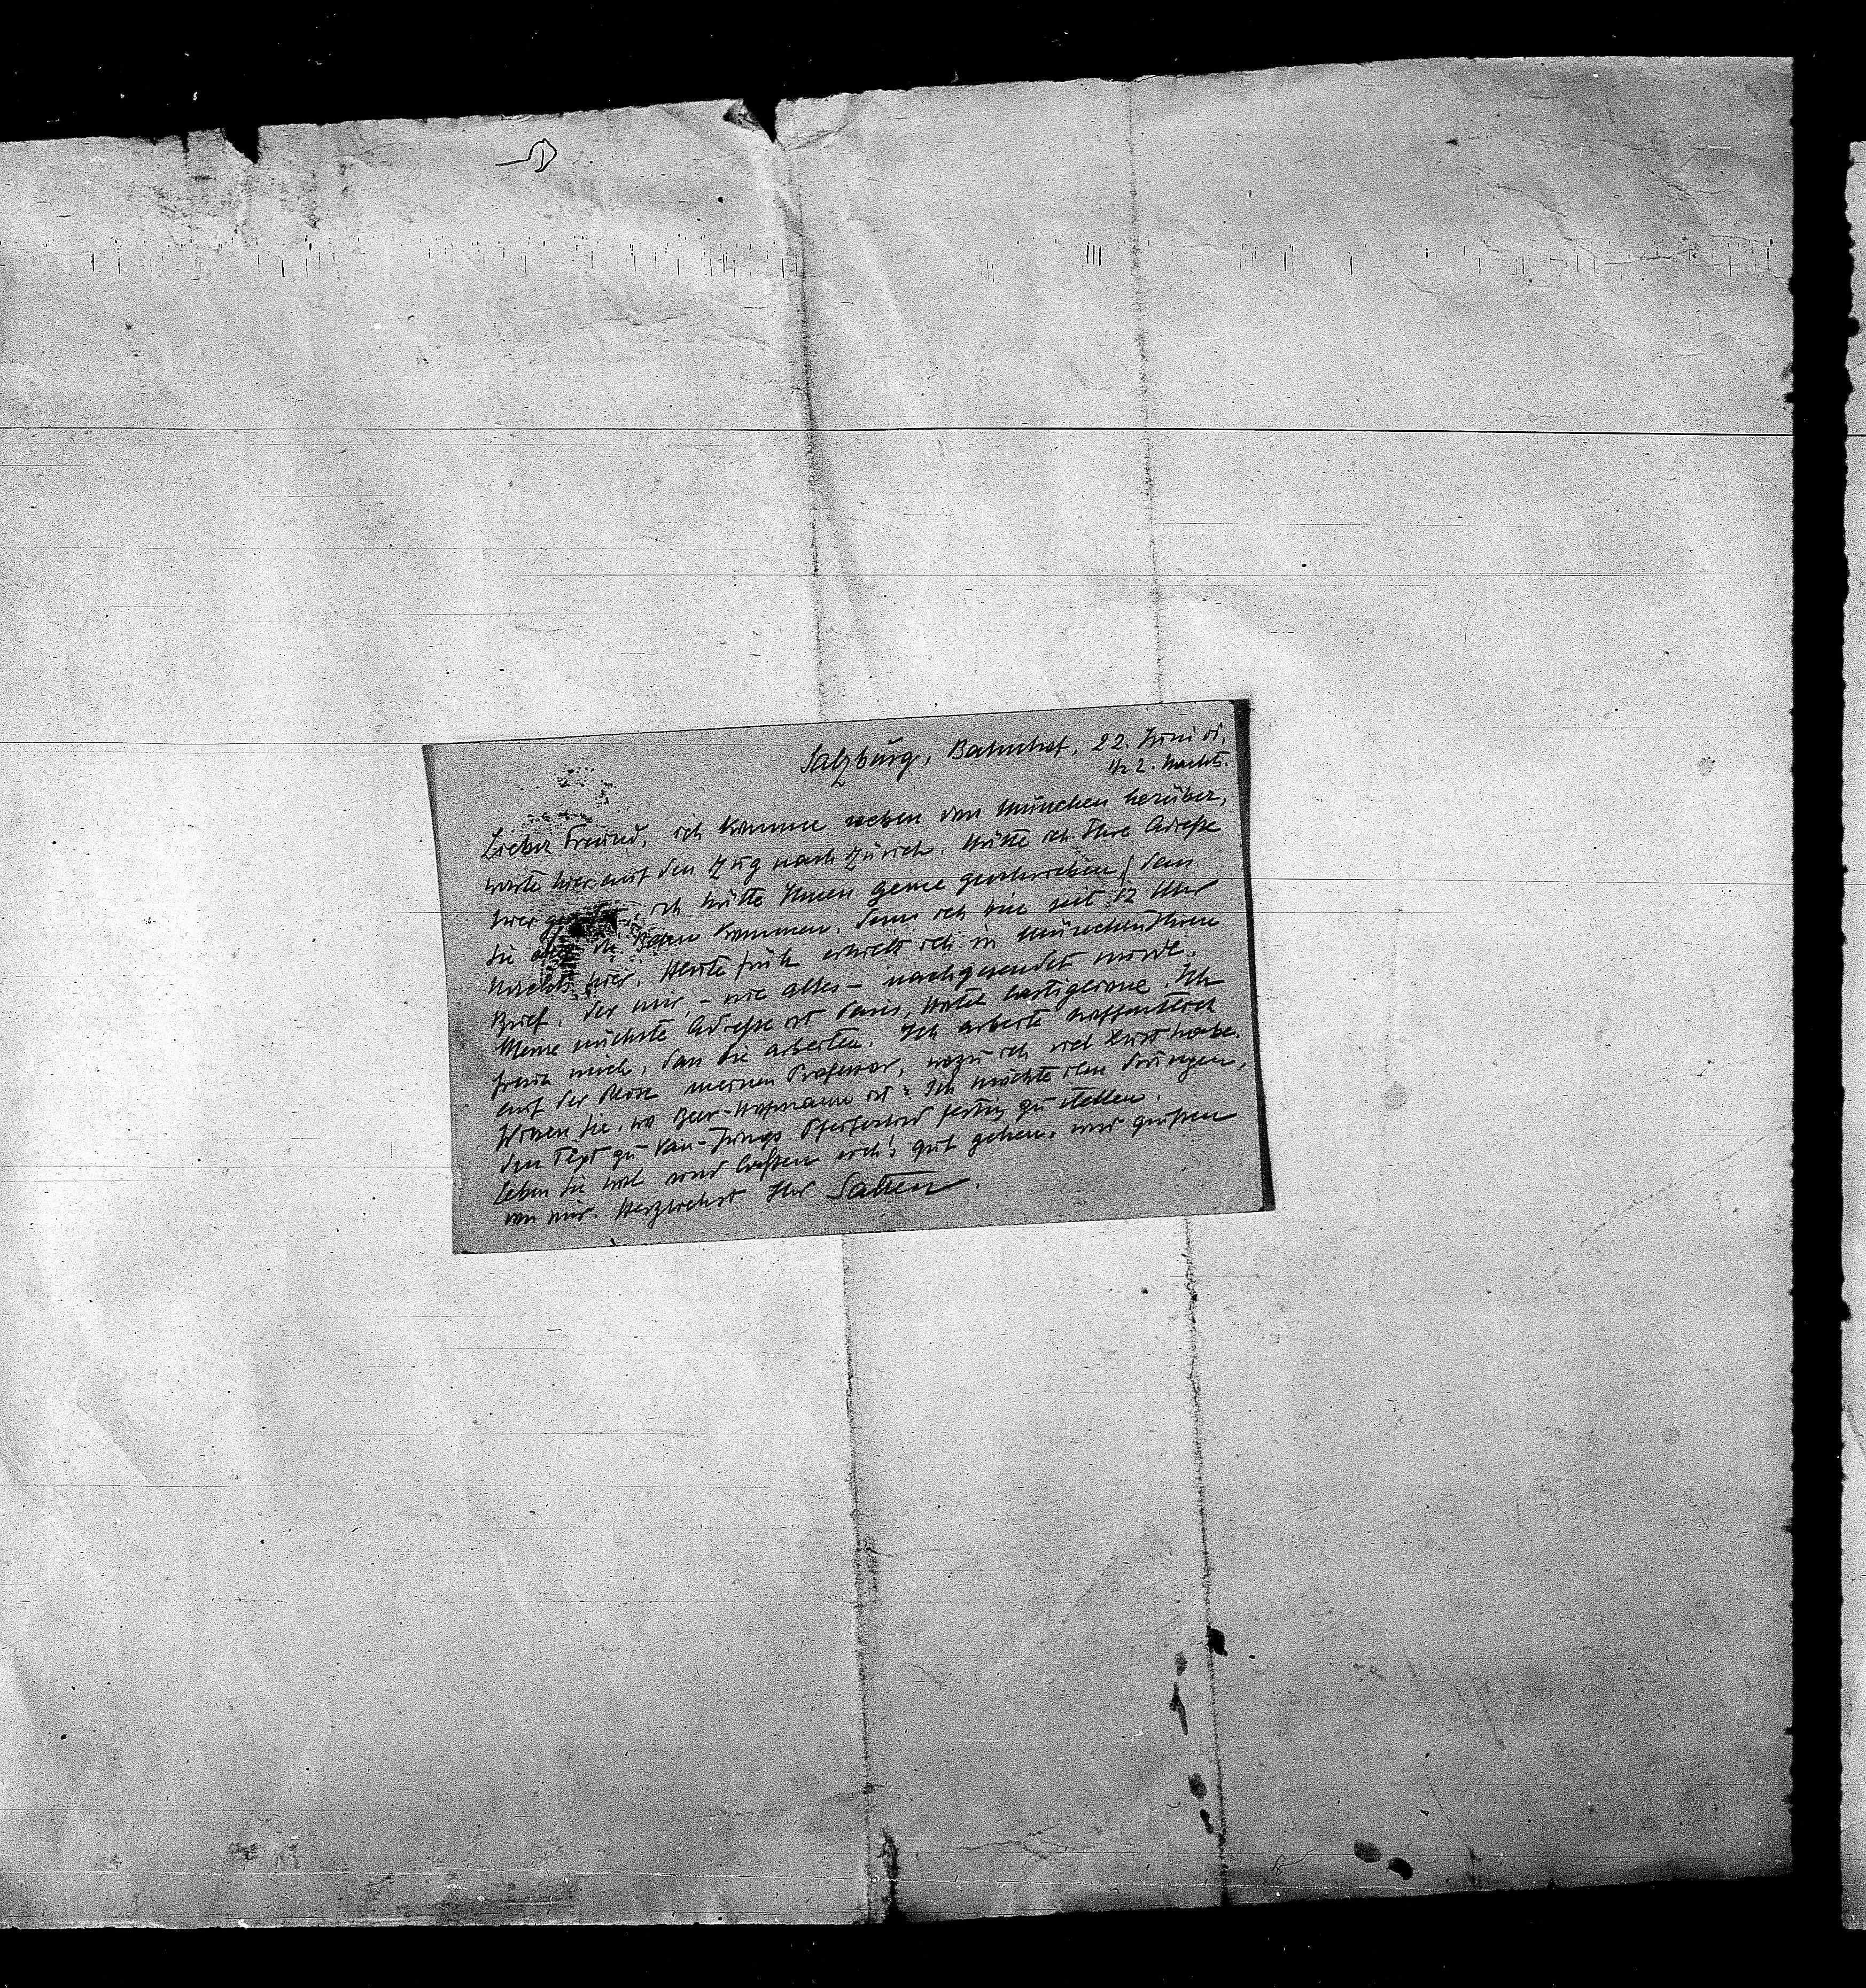 Salzburg, Bahnhof, 22. Juni 01.
1/2 2. Nachts.
Lieber Freund, ich komme soeben von München herüber,
warte hier auf den Zug nach Zürich. Hätte ich Ihre Adreſse
hier ich hätte Ihnen gerne geschrieben, dass
Sie an die Bahn kommen, denn ich bin seit 12 Uhr
Nachts hier. Heute früh erhielt ich in München Ihren
Brief, der mir, – wie alles – nachgesendet wurde.
Meine nächste Adreſse ist Paris, Hotel Castiglione. Ich
freue mich, dass Sie arbeiten. Ich arbeite hoffentlich
auf der Reise meinen Professor, wozu ich viel Lust habe.
Wissen Sie, wo Beer-Hofmann ist? Ich möchte ihn drängen,
den Text zu Van-Jungs Pfeiferlied fertig zu stellen.
Leben Sie wol und laſsen sich's gut gehen, und grüßen
von mir. Herzlichst Ihr Salten.